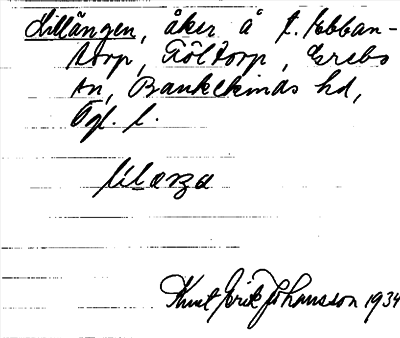 Lillängen, åker å f. Ebban-
storp, Fölstorp, Grebo
sn, Bankekinds hd,
Ögl. l.
Knut Erik Johansson 1934